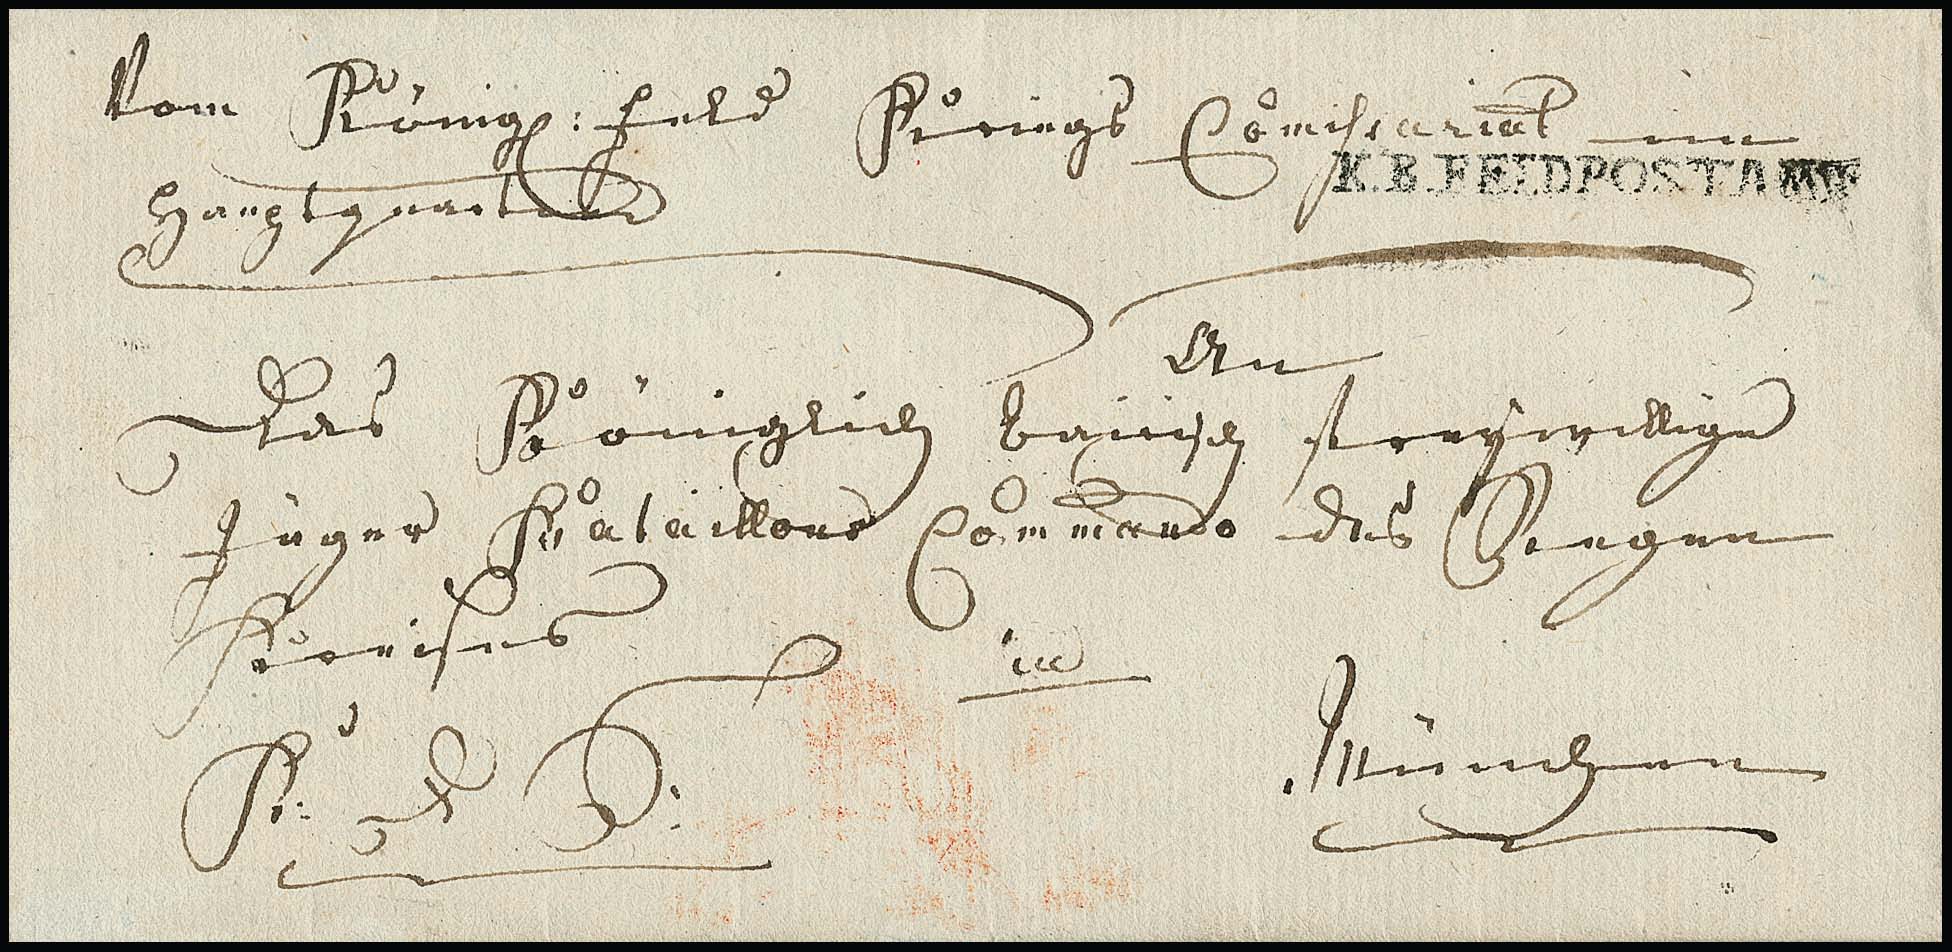 Vom Königl: Feld Kriegs Com̄issariat im
K.B.FELDPOSTAMT
Hauptquartier
An
Das Königlich bairisch freywillige
Jäger Bataillons Commando des Regen
Kreises
in
K: D: S:
München